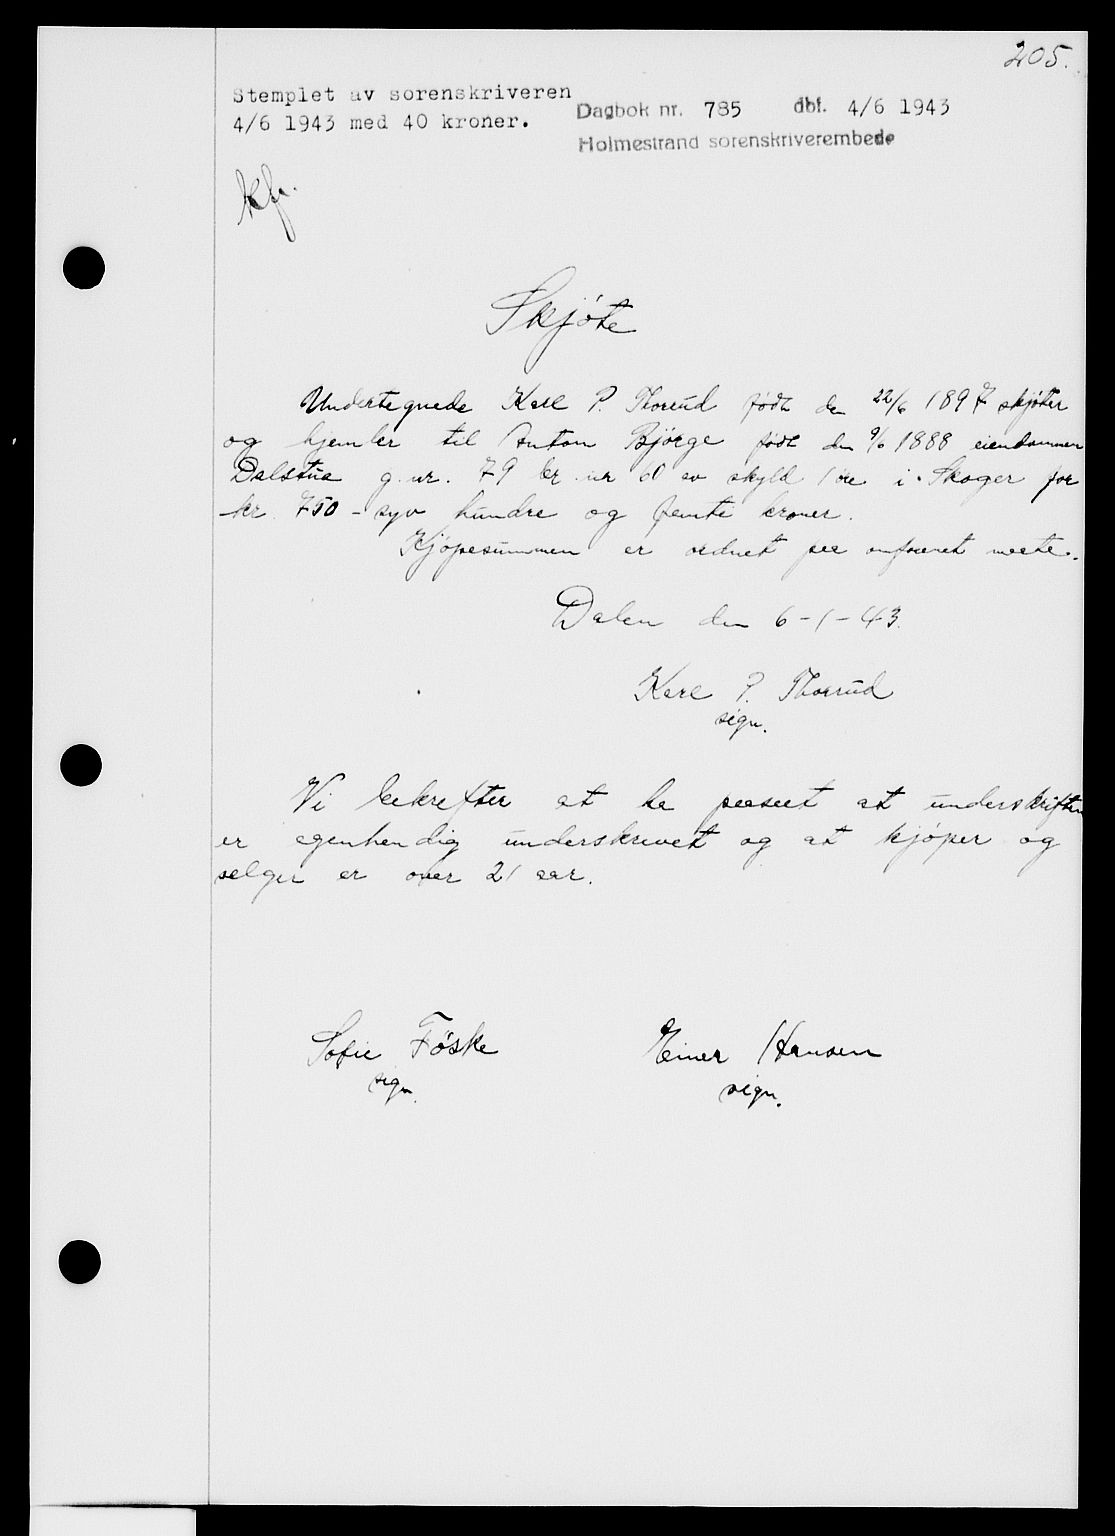 205.
Stemplet av sorenskriveren
4/6 1943 med 40 kroner.
Dagbok nr. 785 dbf. 4/6 1943
Holmestrand sorenskriverembede
kfr.
Skjøte
Undertegnede Karl P. Thorrud født den 22/6 1897 skjøter
og hjemler til Anton Bjørge født den 9/6 1888 eiendommen
Dalstua g. nr. 79 br. nr 60 av skyld 1 øre i Skoger for
kr 750 - syv hundre og femti kroner.
Kjøpesummen er ordnet paa omforenet maate.
Dalen den 6-1-43.
Karl P. Thorrud
sign.
Vi bekrefter at ha paaseet at underskriften
er egenhendig underskrevet og at kjøper og
selger er over 21 aar.
Sofie Føske
sign.
Einar Hansen
sign.